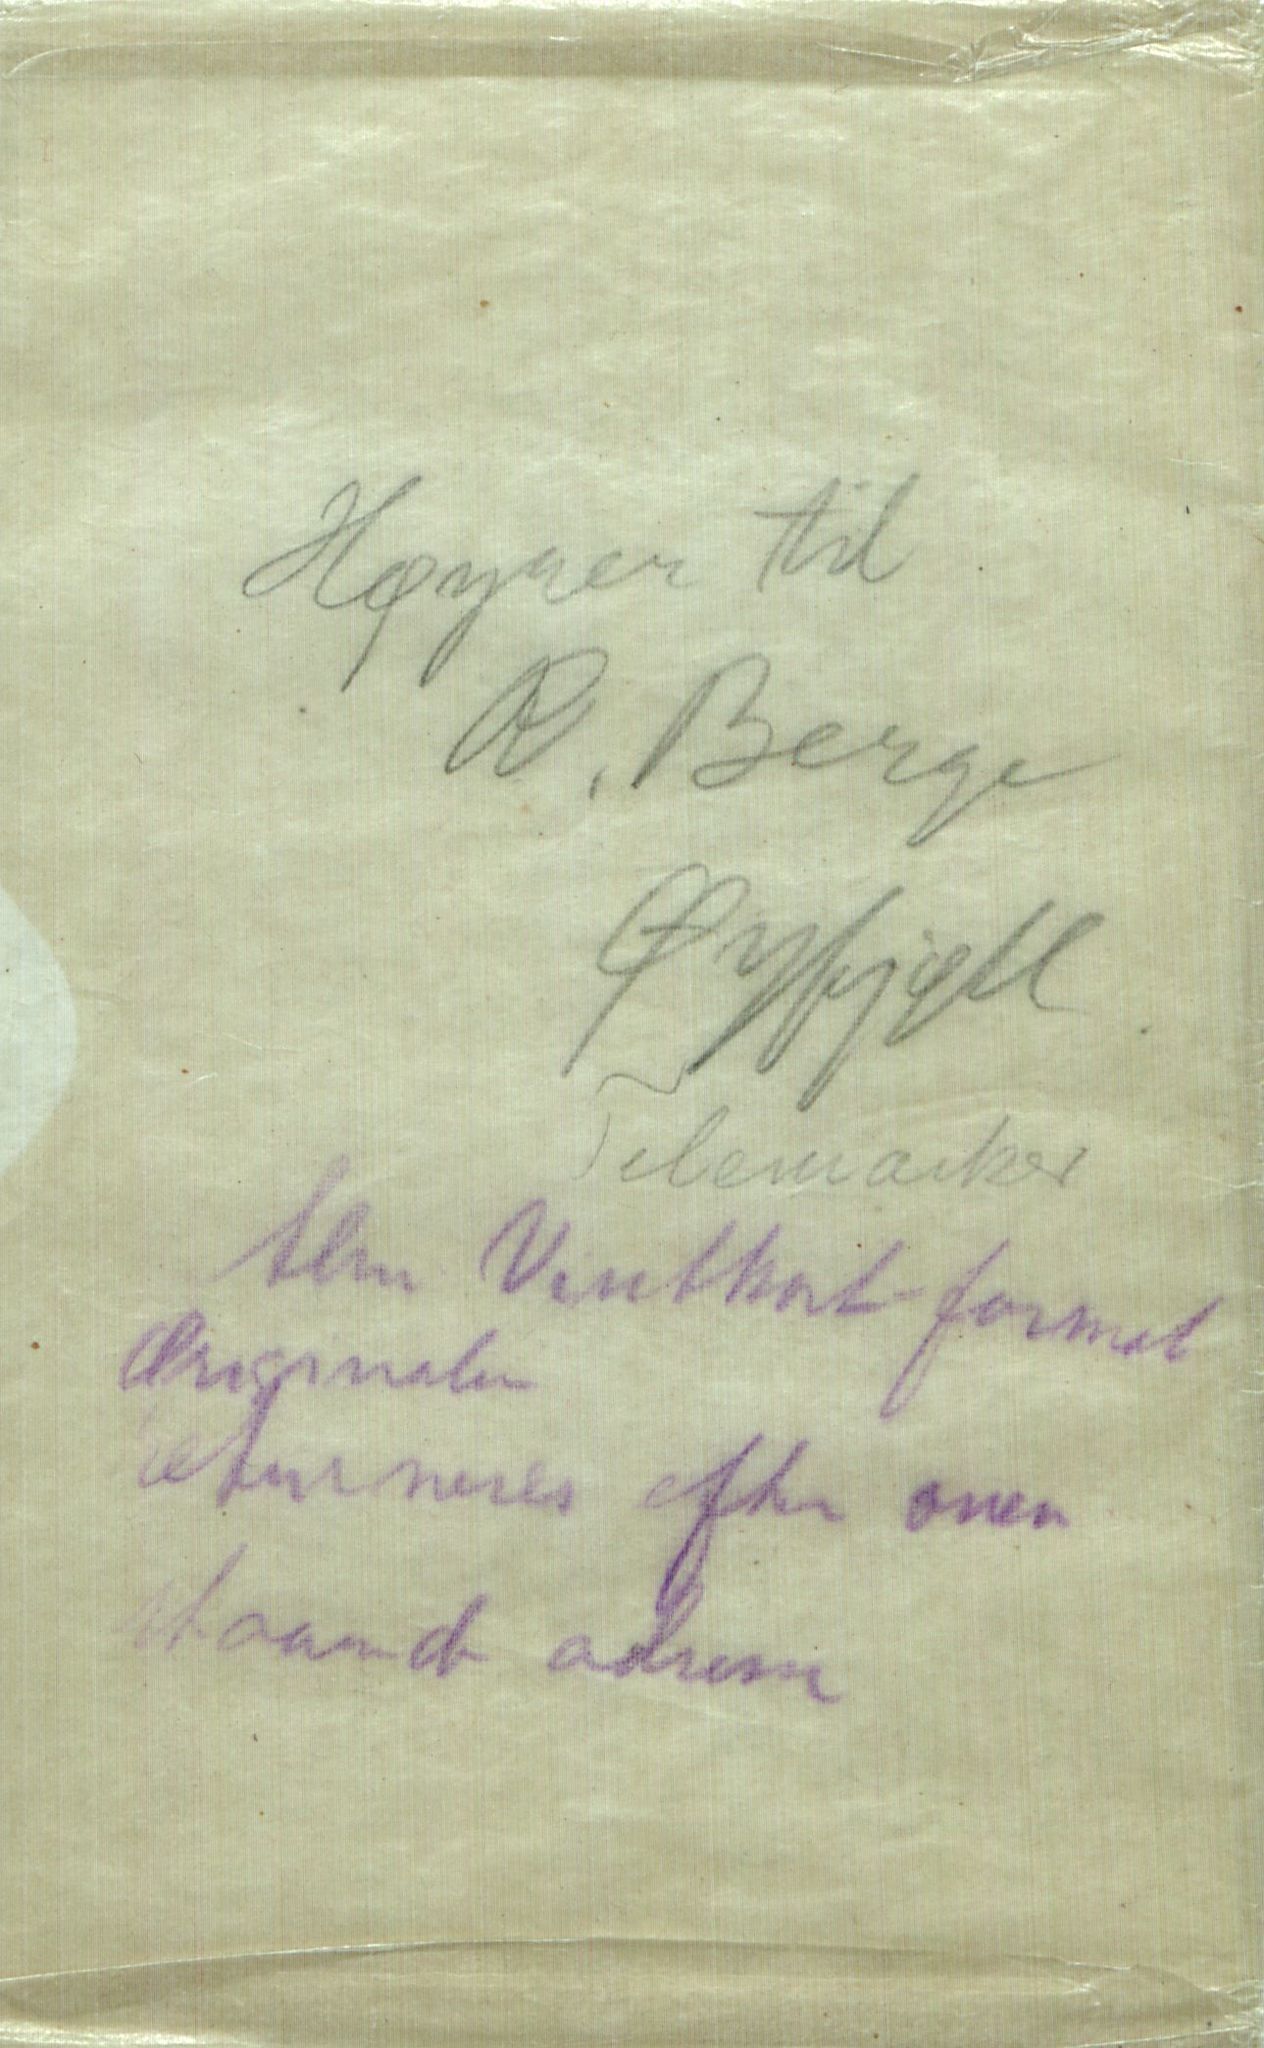 Høyrer til
R. Berge
Øyfjell
Telemarken
alm Visitkort format
Originalen
returneres efter oven
staaende adresse